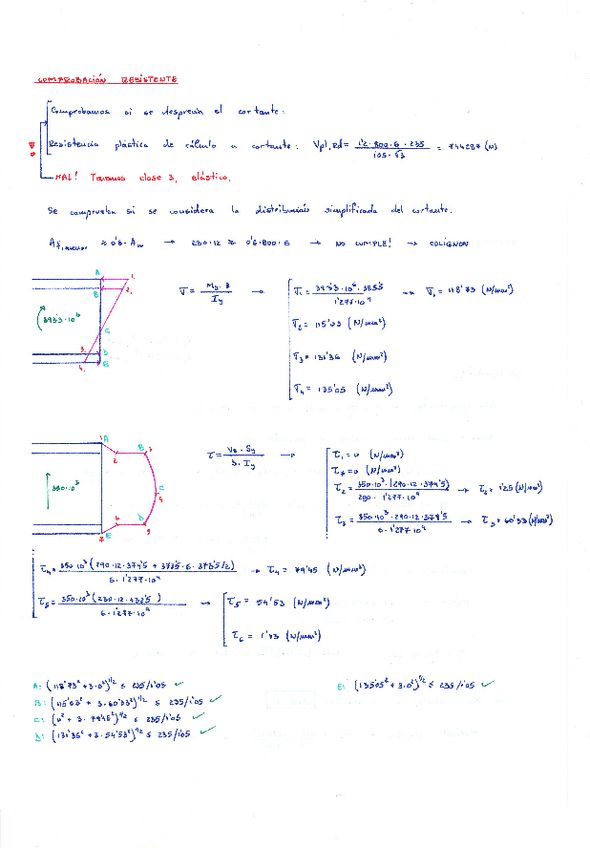 COMPROBACIÓN RESISTENTE
Comprobamos si se desprecia el cortante:
Resistencia plástica de cálculo a cortante: Vpl,Rd = 1'2·800·6·235 / 1'05·√3 = 744287 (N)
MAL! Tenemos clase 3, elástico.
Se comprueba si se considera la distribución simplificada del cortante:
≥ 0'6·Aw → 230·12 ≥ 0'6·800·6 → NO CUMPLE! → COLIGNON
A 1.
B 2.
C
3. D
4. E
393'3·10⁶
σ = My·z / Iy →
σ₁ = / 1'277·10⁹ → σ₁ = 118'73 (N/mm²)
σ₂ = 115'03 (N/mm²)
σ₃ = 131'36 (N/mm²)
σ₄ = 135'05 (N/mm²)
1 A
2 B 3
C 4
6 D 5
7 E
350·10³
τ = Vz·Sy / s·Iy →
τ₁ = 0 (N/mm²)
τ₇ = 0 (N/mm²)
τ₂ = / 1'277·10⁹ → τ₂ = 1'25 (N/mm²)
τ₃ = / 6·1'277·10⁹ → τ₃ = 60'33 (N/mm²)
τ₄ = / 6·1'277·10⁹ → τ₄ = 79'45 (N/mm²)
τ₅ = 350·10³(230·12·432'5) / 6·1'277·10⁹ → τ₅ = 54'53 (N/mm²)
τ₆ = (N/mm²)
A: (118'73² + 3·0²)^1/2 ≤ 235/1'05 ✓
B: (115'03² + 3·60'33²)^1/2 ≤ 235/1'05 ✓
C: (0² + 3·79'45²)^1/2 ≤ 235/1'05 ✓
D: (131'36² + 3·54'53²)^1/2 ≤ 235/1'05 ✓
E: (135'05² + 3·0²)^1/2 ≤ 235/1'05 ✓